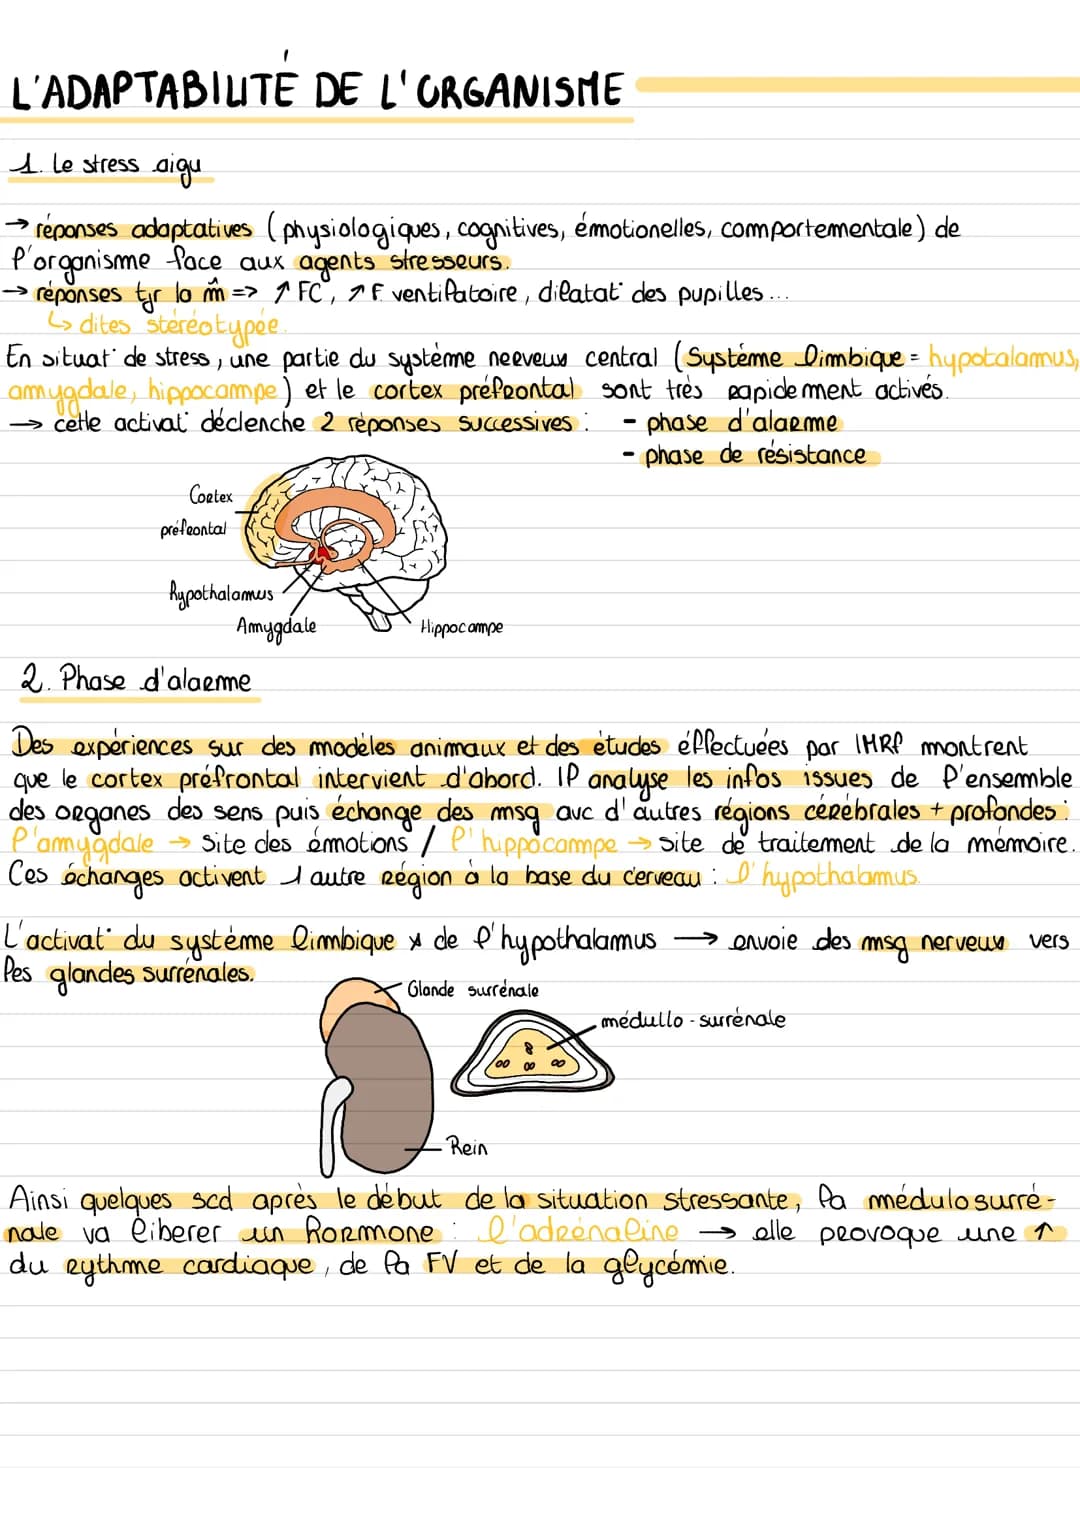 L'ADAPTABILITÉ DE L'ORGANISME
1. Le stress aigu
→ réponses adaptatives (physiologiques, cognitives, émotionelles, comportementale) de
l'organisme face aux agents stresseurs.
→ réponses tjr la m̂ => ↗ FC, ↗ F ventilatoire, dilatat° des pupilles...
↳ dites stéréotypée.
En situat° de stress, une partie du système nerveux central (Système limbique = hypotalamus,
amygdale, hippocampe) et le cortex préfrontal sont très rapidement activés.
→ cette activat° déclenche 2 réponses successives : - phase d'alarme
- phase de résistance
Cortex
préfrontal
Hypothalamus
Amygdale
Hippocampe
2. Phase d'alarme
Des expériences sur des modèles animaux et des études éffectuées par IMRf montrent
que le cortex préfrontal intervient d'abord. Il analyse les infos issues de l'ensemble
des organes des sens puis échange des msg avc d'autres régions cérébrales + profondes :
l'amygdale → site des émotions / l'hippocampe → site de traitement de la mémoire.
Ces échanges activent 1 autre région à la base du cerveau : l'hypothalamus.
L'activat° du système limbique x de l'hypothalamus → envoie des msg nerveux vers
les glandes surrénales.
Glande surrénale
médullo-surrénale
Rein
Ainsi quelques scd après le début de la situation stressante, la médulosurré-
nale va liberer un hormone : l'adrénaline → elle provoque une ↑
du rythme cardiaque, de la FV et de la glycémie.